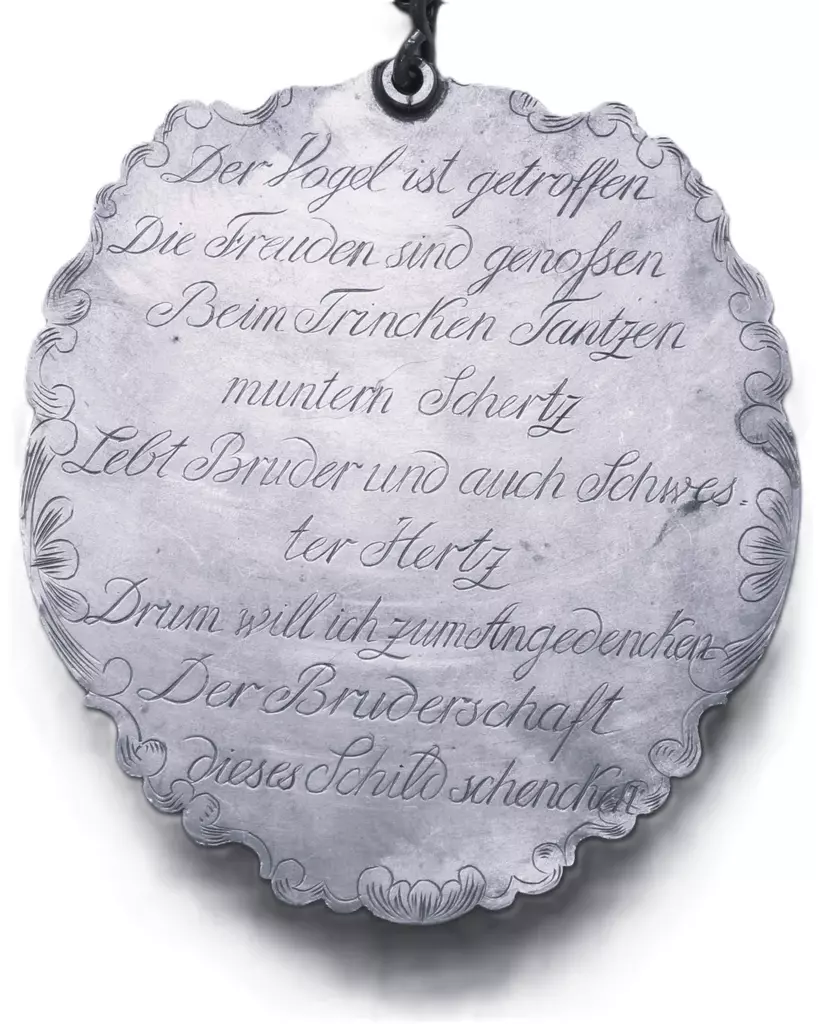 Der Vogel ist getroffen
Die Freuden sind genoßen
Beim Trincken Tantzen
muntern Schertz
Lebt Bruder und auch Schwes=
ter Hertz
Drum will ich zum Angedencken
Der Bruderschaft
dieses Schild schencken